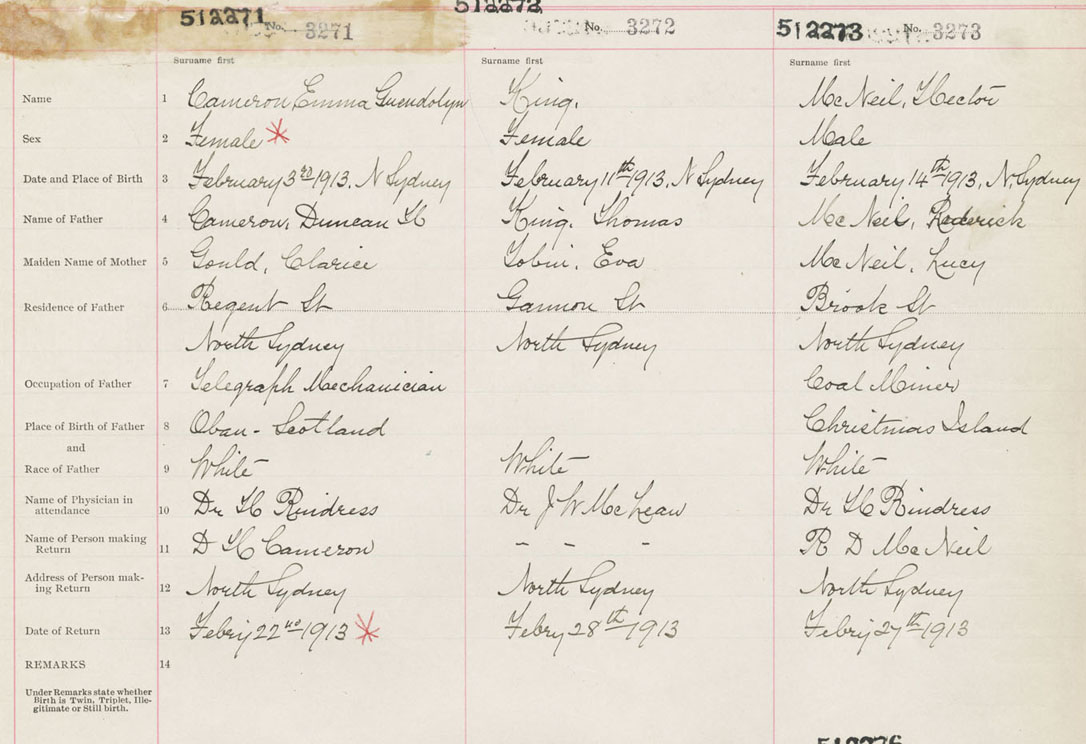 512271 No. 3271
512272 No. 3272
512273 No. 3273
Surname first Surname first Surname first
Name 1 Cameron Emma Guendolyn King. McNeil, Hector
Sex 2 Female Female Male
Date and Place of Birth 3 February 3rd 1913. N Sydney February 11th 1913, N Sydney February 14th 1913, N. Sydney
Name of Father 4 Cameron, Duncan H King, Thomas McNeil, Roderick
Maiden Name of Mother 5 Gould, Clarice Tobin, Eva McNeil, Lucy
Residence of Father 6 Regent St Gannon St Brook St
North Sydney North Sydney North Sydney
Occupation of Father 7 Telegraph Mechanician Coal Miner
Place of Birth of Father 8 Oban - Scotland Christmas Island
and
Race of Father 9 White White White
Name of Physician in
attendance 10 Dr H Rindress Dr J W McLean Dr H Rindress
Name of Person making
Return 11 D H Cameron - - - R D McNeil
Address of Person mak-
ing Return 12 North Sydney North Sydney North Sydney
Date of Return 13 Febry 22nd 1913 Febry 28th 1913 Febry 27th 1913
REMARKS 14
Under Remarks state whether
Birth is Twin, Triplet, Ille-
gitimate or Still birth.